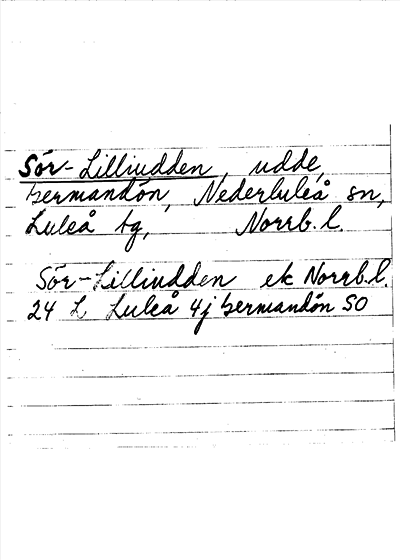 Sör-Lilliudden, udde,
Germandön, Nederluleå sn,
Luleå tg, Norrb.l.
Sör-Lilliudden ek Norrb.l.
24 L Luleå 4j Germandön SO